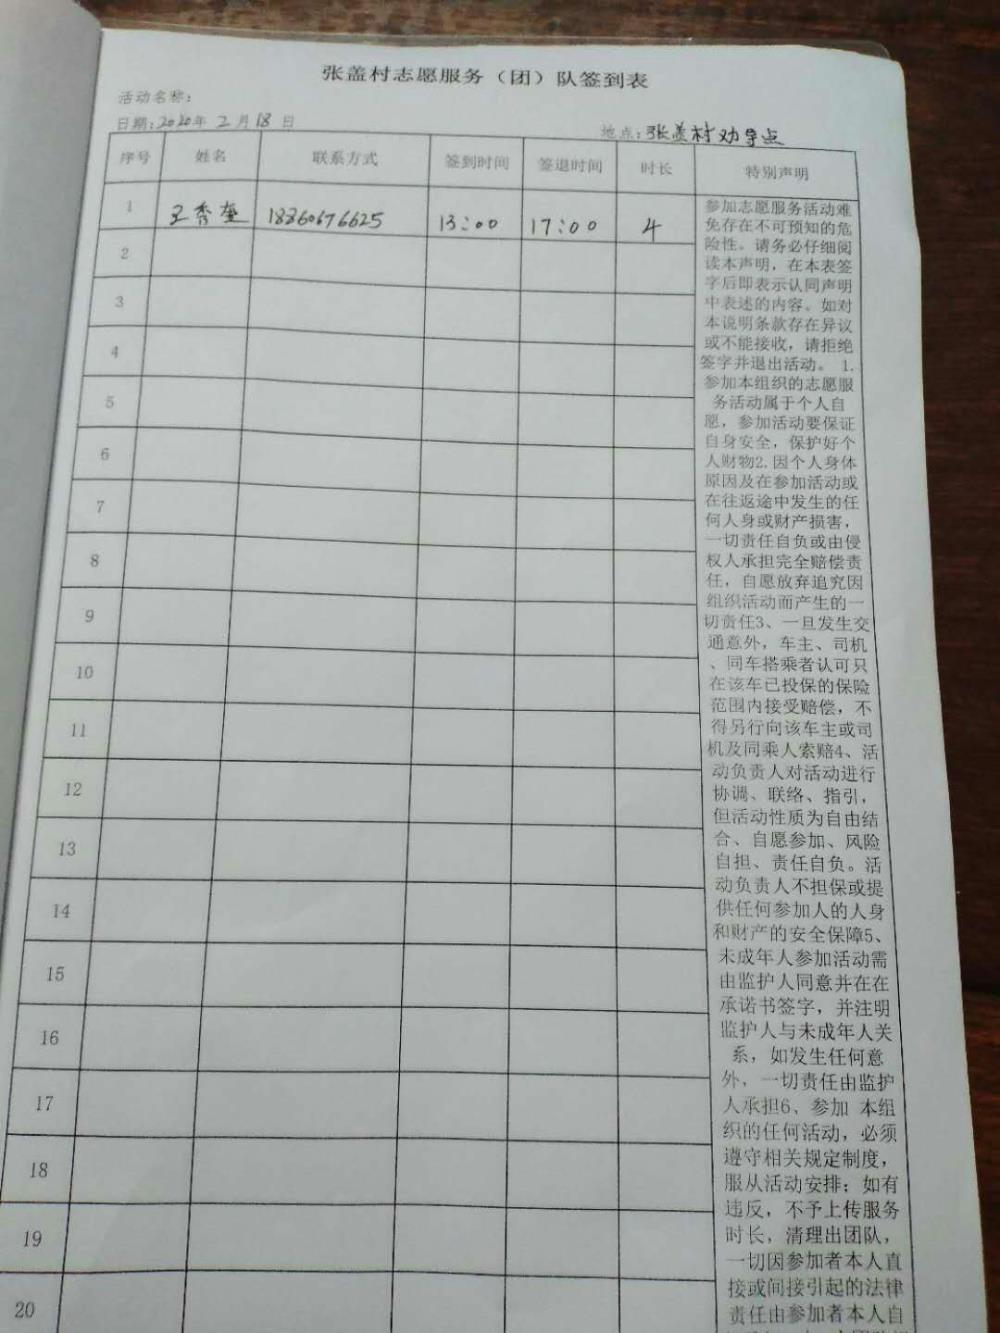 张盖村志愿服务（团）队签到表
活动名称：
日期：2020年 2月18 日
地点：张盖村劝导点
序号 姓名 联系方式 签到时间 签退时间 时长 特别声明
1 王秀奎 18860676625 13:00 17:00 4
2
3
4
5
6
7
8
9
10
11
12
13
14
15
16
17
18
19
20
参加志愿服务活动难
免存在不可预知的危
险性。请务必仔细阅
读本声明，在本表签
字后即表示认同声明
中表述的内容。如对
本说明条款存在异议
或不能接收，请拒绝
签字并退出活动。 1.
参加本组织的志愿服
务活动属于个人自
愿，参加活动要保证
自身安全，保护好个
人财物2.因个人身体
原因及在参加活动或
在往返途中发生的任
何人身或财产损害，
一切责任自负或由侵
权人承担完全赔偿责
任，自愿放弃追究因
组织活动而产生的一
切责任3、一旦发生交
通意外，车主、司机
、同车搭乘者认可只
在该车已投保的保险
范围内接受赔偿，不
得另行向该车主或司
机及同乘人索赔4、活
动负责人对活动进行
协调、联络、指引，
但活动性质为自由结
合、自愿参加、风险
自担、责任自负。活
动负责人不担保或提
供任何参加人的人身
和财产的安全保障5、
未成年人参加活动需
由监护人同意并在在
承诺书签字，并注明
监护人与未成年人关
系，如发生任何意
外，一切责任由监护
人承担6、参加 本组
织的任何活动，必须
遵守相关规定制度，
服从活动安排；如有
违反，不予上传服务
时长，清理出团队，
一切因参加者本人直
接或间接引起的法律
责任由参加者本人自